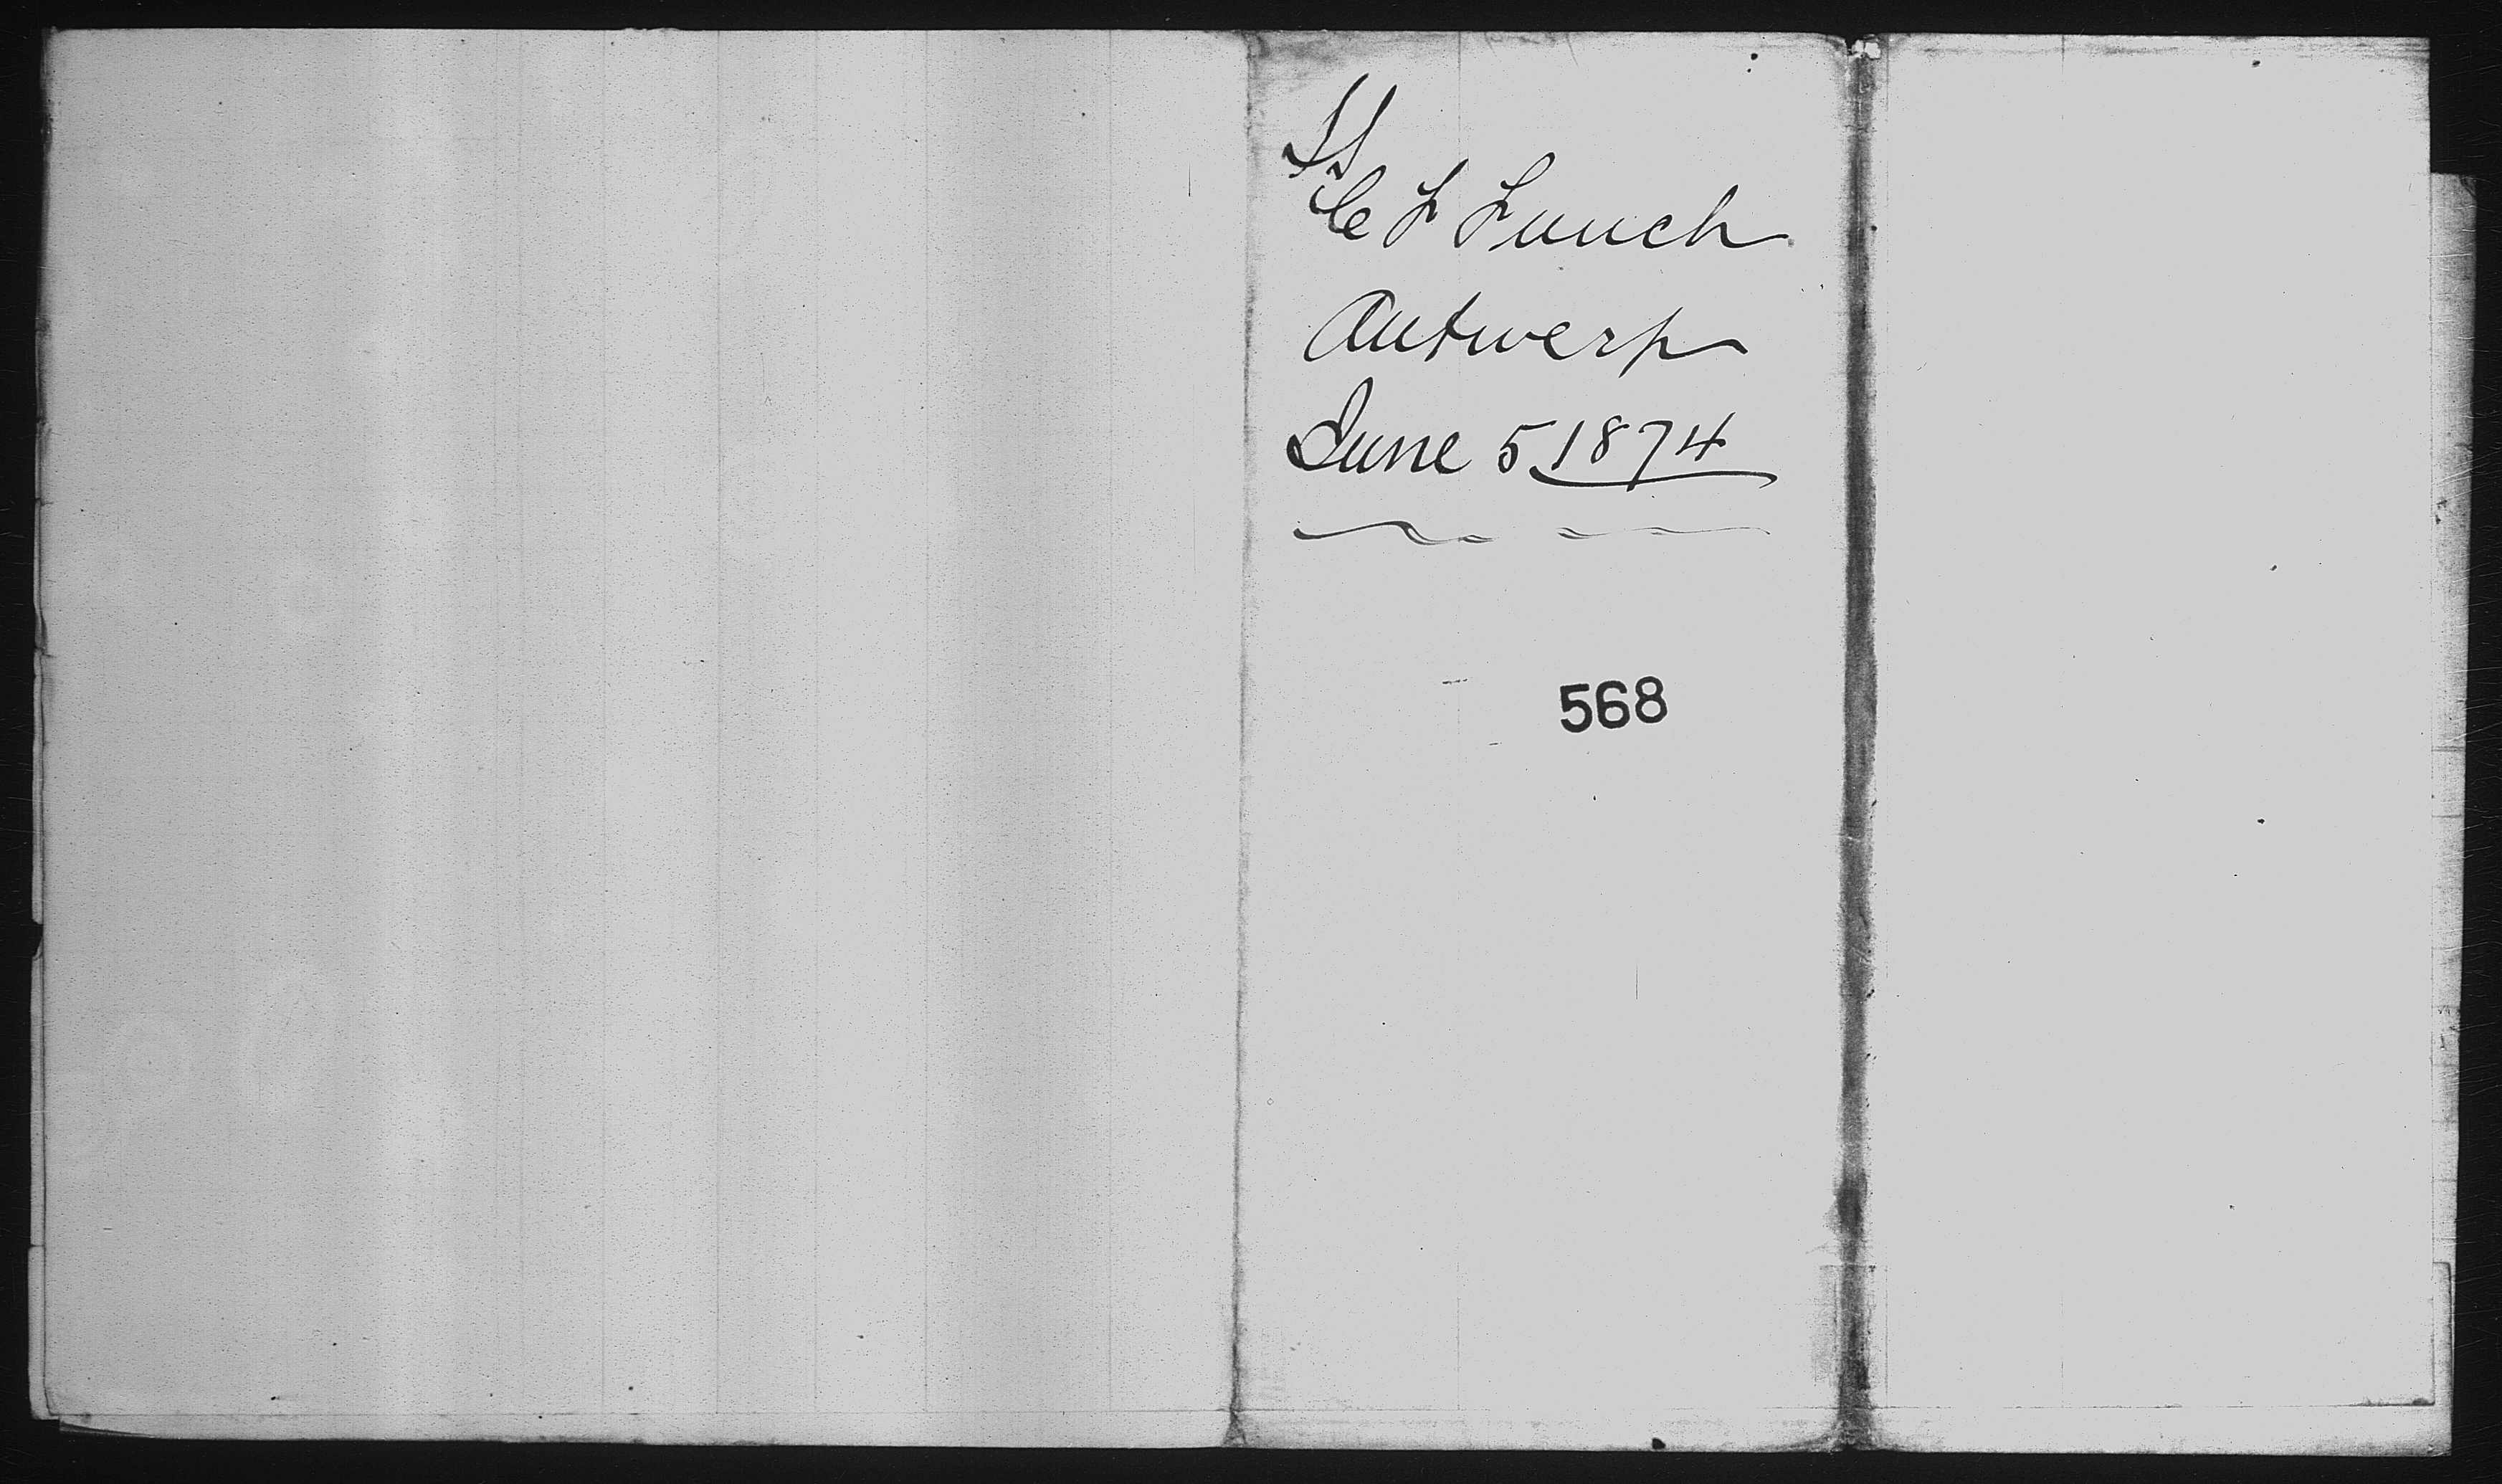 SS
C F Funch
Antwerp
June 5 1874
568